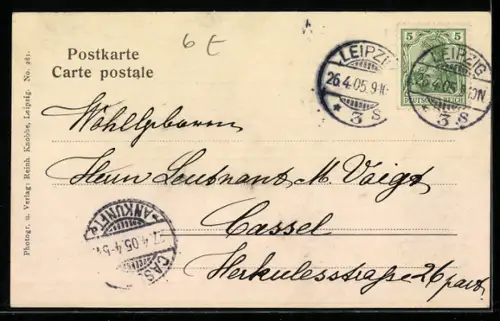 6 E
Postkarte
Carte postale
5
DEUTSCHES REICH
LEIPZIG
26.4.05.9-
* 3 s
LEIPZIG
4.05
* 3 s
Wohlgeboren
Herrn Leutnant M. Voigt
Cassel
Herkulesstraße 26 part
CAS
27.4.05.4-5
ANKUNFT
Photogr. u. Verlag: Reinh. Knobbe, Leipzig. No. 281.